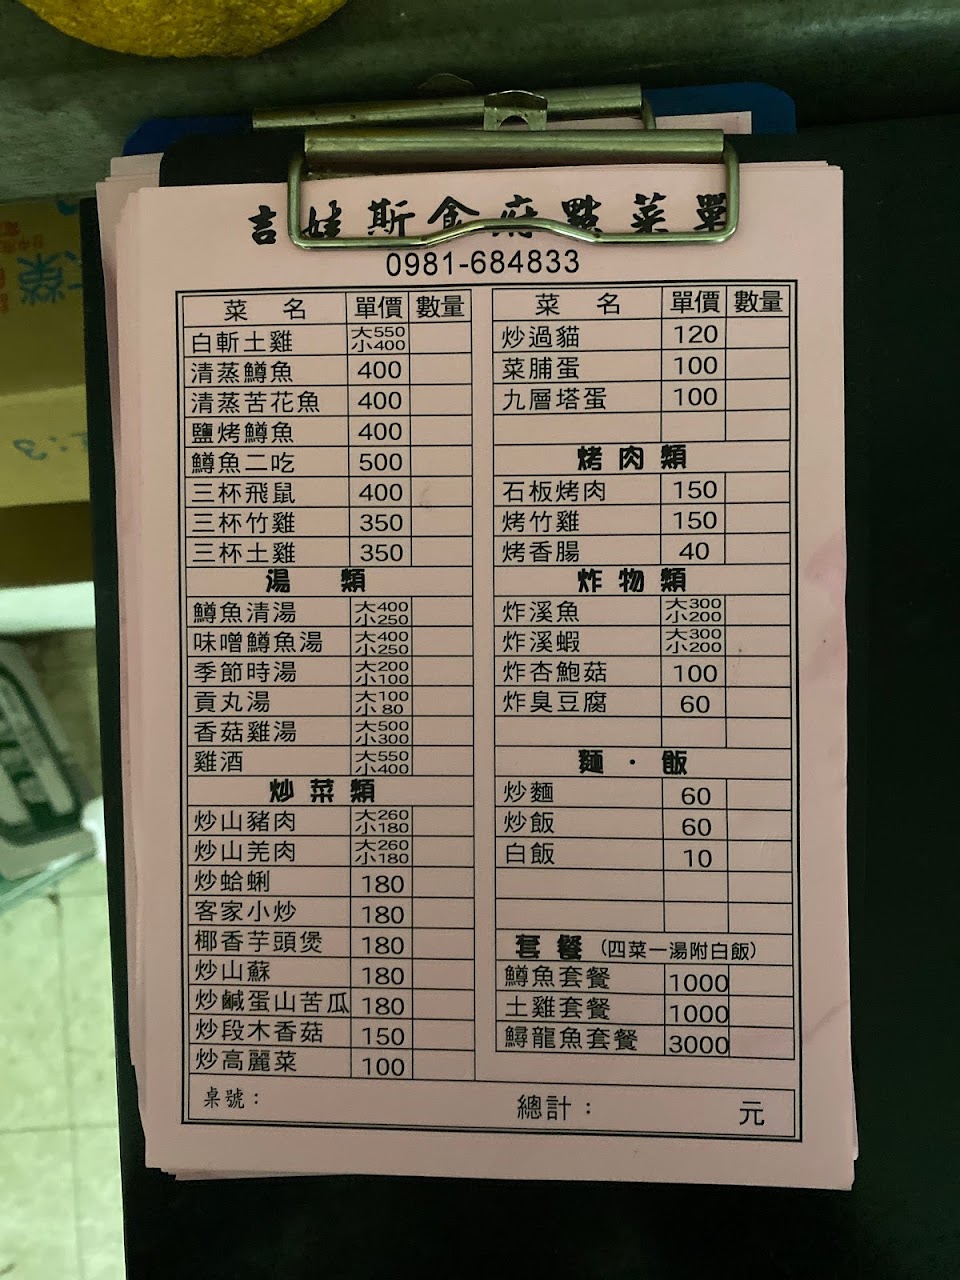 吉娃斯食府點菜單
0981-684833
菜 名 單價 數量
白斬土雞 大550 小400
清蒸鱒魚 400
清蒸苦花魚 400
鹽烤鱒魚 400
鱒魚二吃 500
三杯飛鼠 400
三杯竹雞 350
三杯土雞 350
湯 類
鱒魚清湯 大400 小250
味噌鱒魚湯 大400 小250
季節時湯 大200 小100
貢丸湯 大100 小80
香菇雞湯 大500 小300
雞酒 大550 小400
炒菜類
炒山豬肉 大260 小180
炒山羌肉 大260 小180
炒蛤蜊 180
客家小炒 180
椰香芋頭煲 180
炒山蘇 180
炒鹹蛋山苦瓜 180
炒段木香菇 150
炒高麗菜 100
菜 名 單價 數量
炒過貓 120
菜脯蛋 100
九層塔蛋 100
烤肉類
石板烤肉 150
烤竹雞 150
烤香腸 40
炸物類
炸溪魚 大300 小200
炸溪蝦 大300 小200
炸杏鮑菇 100
炸臭豆腐 60
麵・飯
炒麵 60
炒飯 60
白飯 10
套餐(四菜一湯附白飯)
鱒魚套餐 1000
土雞套餐 1000
鱘龍魚套餐 3000
桌號： 總計： 元